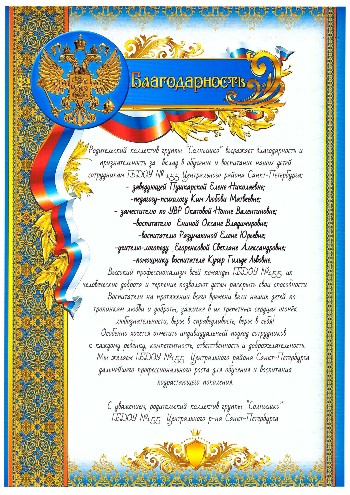 Благодарность
Родительский коллектив группы "Солнышко" выражает благодарность и
признательность за вклад в обучение и воспитание наших детей
сотрудникам ГБДОУ № Центрального района Санкт-Петербурга:
- заведующей Пушкарской Елене Николаевне;
-педагогу-психологу Ким Любови Матвеевне;
- заместителю по УВР Окатовой Нонне Валентиновне;
-воспитателю Ениной Оксане Владимировне;
-воспитателю Раздумакиной Елене Юрьевне;
-учителю-логопеду Егоренковой Светлане Александровне;
-помощнику воспитателя Кугер Гильде Львовне.
Высокий профессионализм всей команды ГБДОУ их
человеческая доброта и терпение позволяют детям раскрыть свои способности.
Воспитатели на протяжении всего времени вели наших детей по
тропинкам любви и доброты, зажигая в их трепетных сердцах огонёк
любознательности, веры в справедливость, веры в себя!
Особенно хочется отметить индивидуальный подход сотрудников
к каждому ребёнку, компетентность, ответственность и доброжелательность.
Мы желаем ГБДОУ Центрального района Санкт-Петербурга
дальнейшего профессионального роста для обучения и воспитания
подрастающего поколения.
С уважением, родительский коллектив группы "Солнышко"
ГБДОУ Центрального р-на Санкт-Петербурга